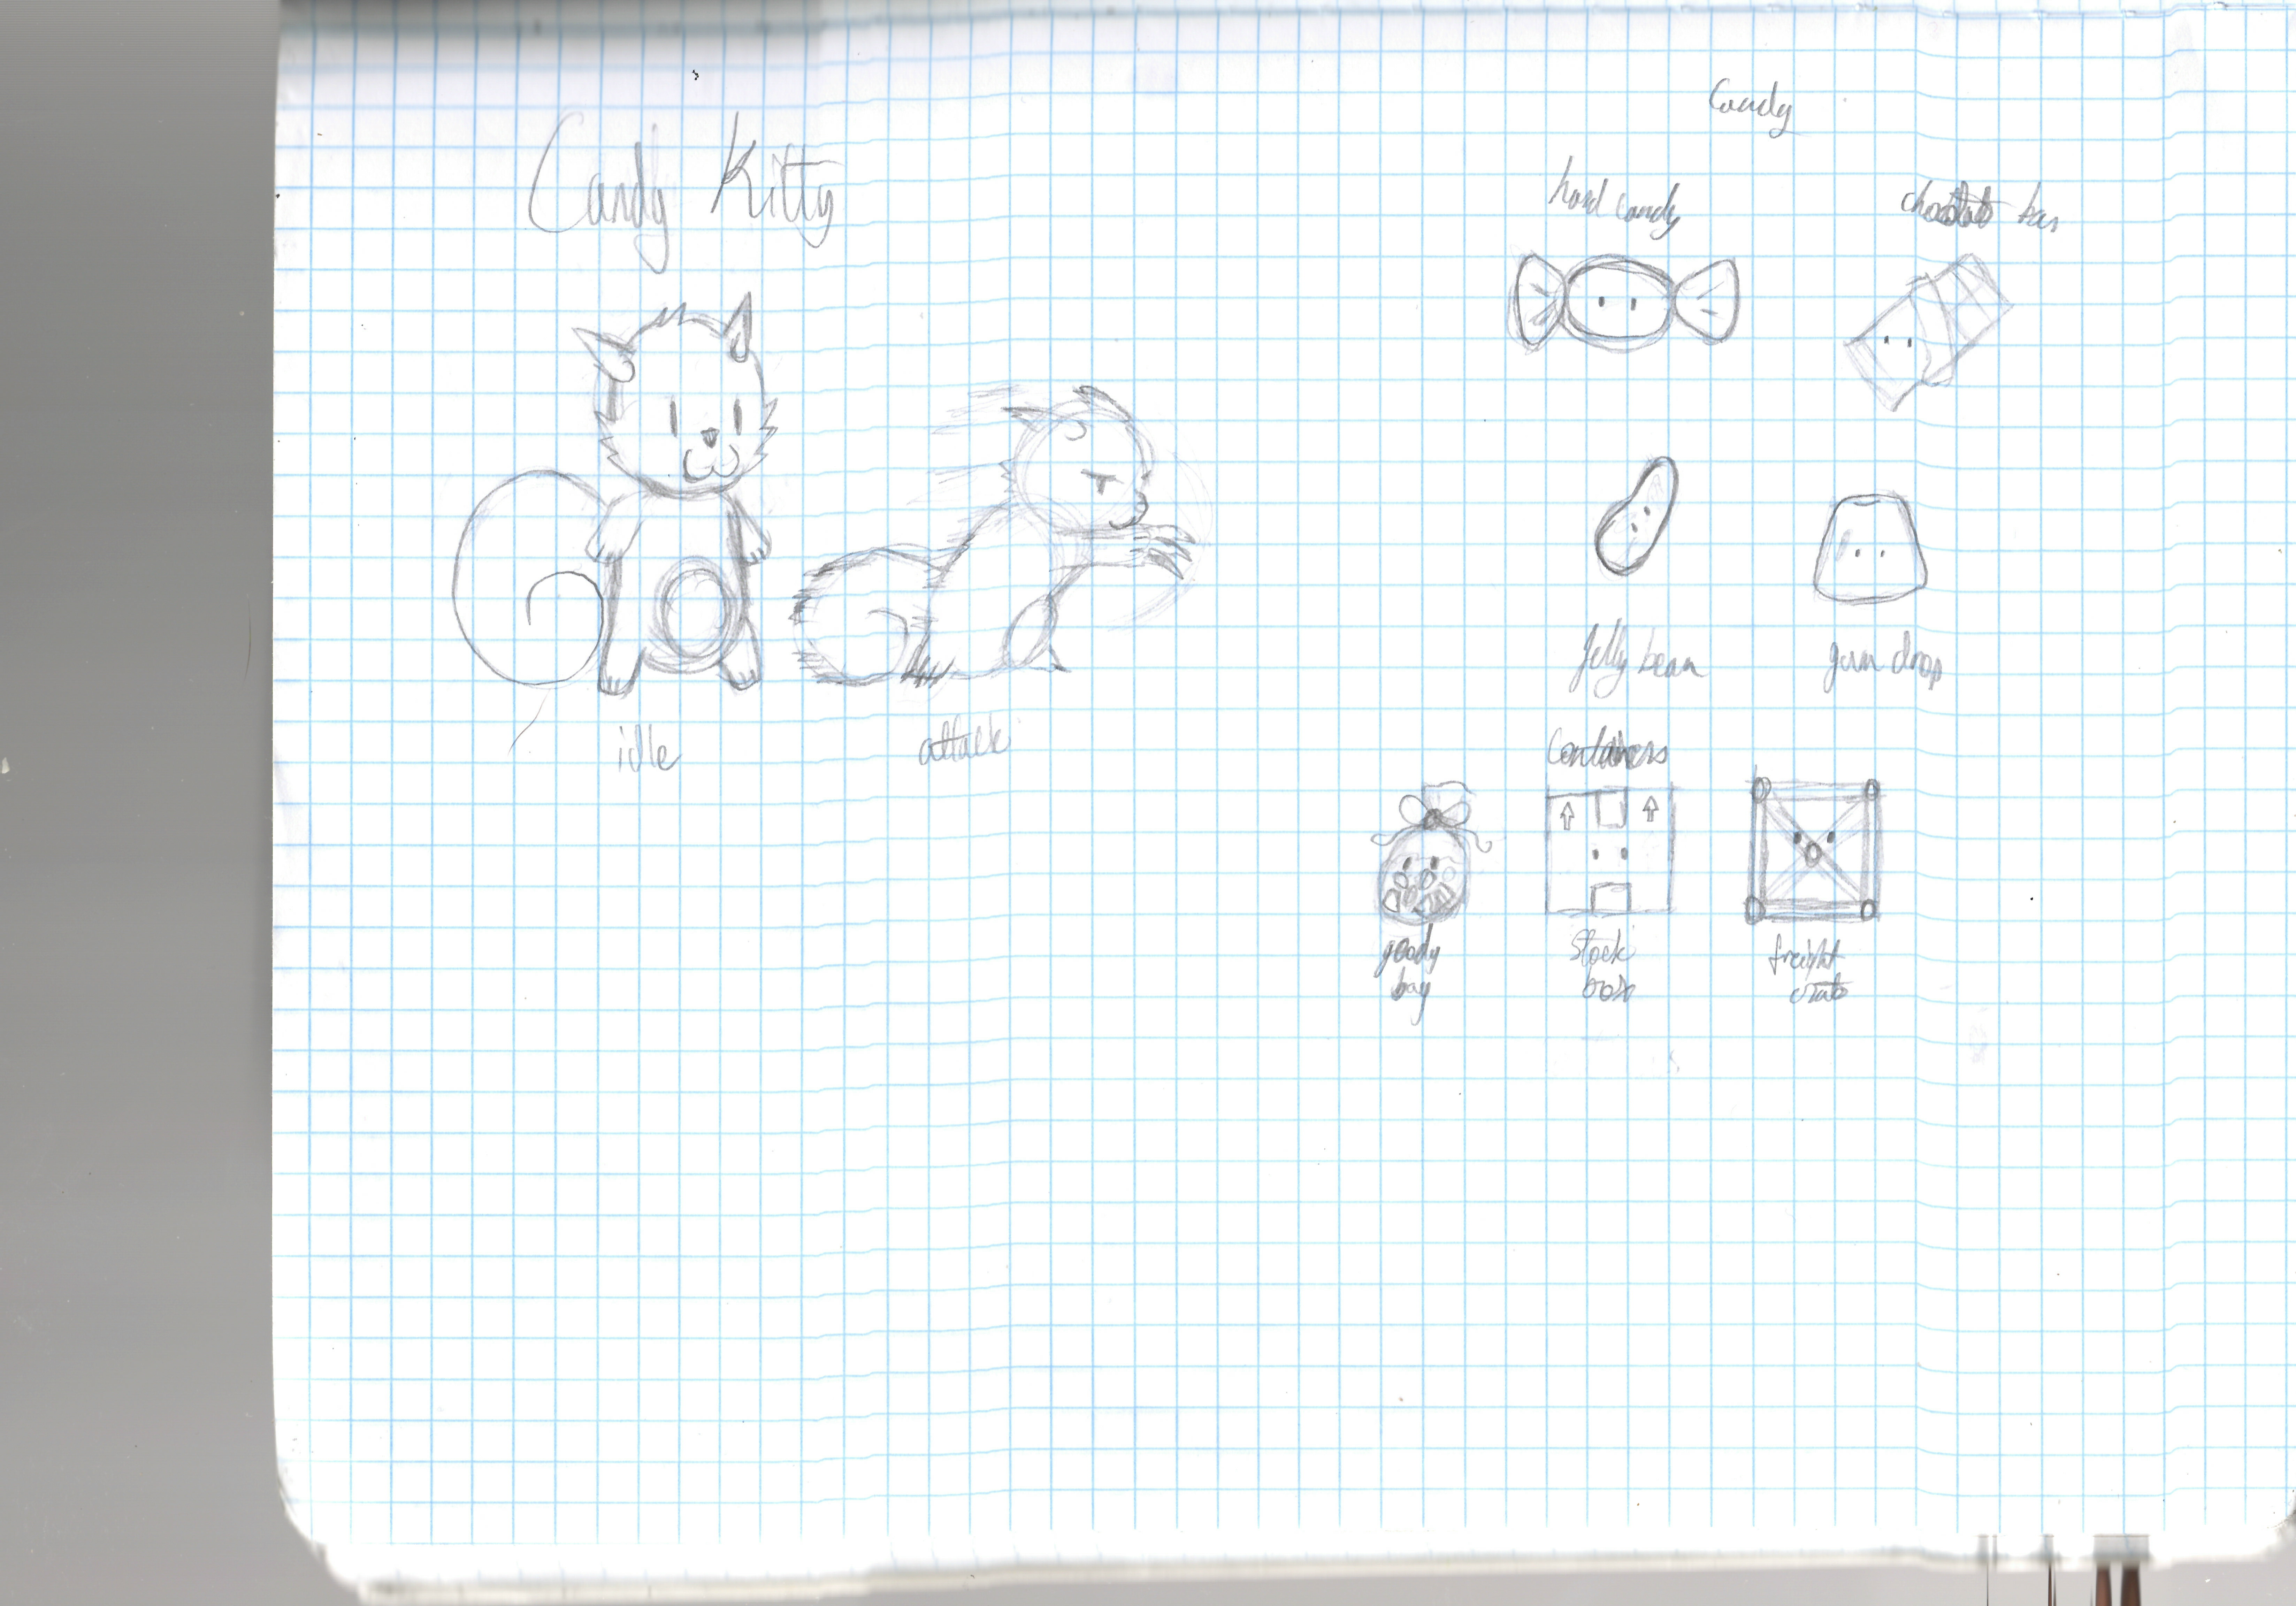 Candy Kitty
idle
attack
Candy
hard candy
chocolate bar
jelly bean
gum drop
Containers
goody
bag
stock
box
freight
crate